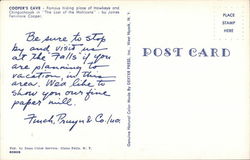 COOPER'S CAVE - Famous hiding place of Hawkeye and
Chingachgook in "The Last of the Mohicans" - by James
Fenimore Cooper.
Be sure to stop
by and visit us
at the Falls if you
are planning to
vacation in this
area. We'd like to
show you our fine
paper mill.
Finch, Pruyn & Co., Inc.
POST CARD
PLACE
STAMP
HERE
Genuine Natural Color Made By DEXTER PRESS, Inc. West Nyack, N. Y.
Pub. by Dean Color Service, Glens Falls, N. Y.